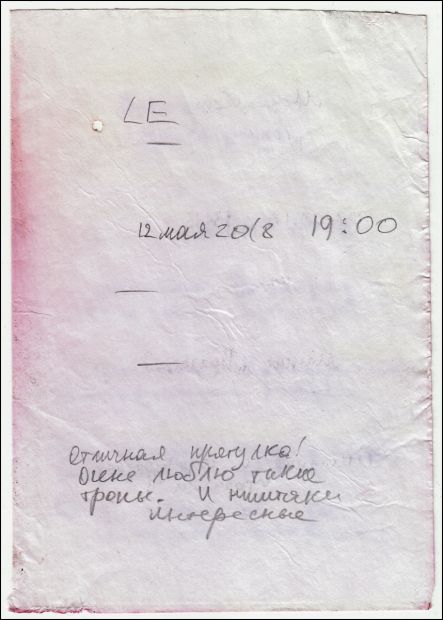 LE
12 мая 2018 19:00
Отличная прогулка!
Очене люблю такие
тропы. И ништяки
интересные